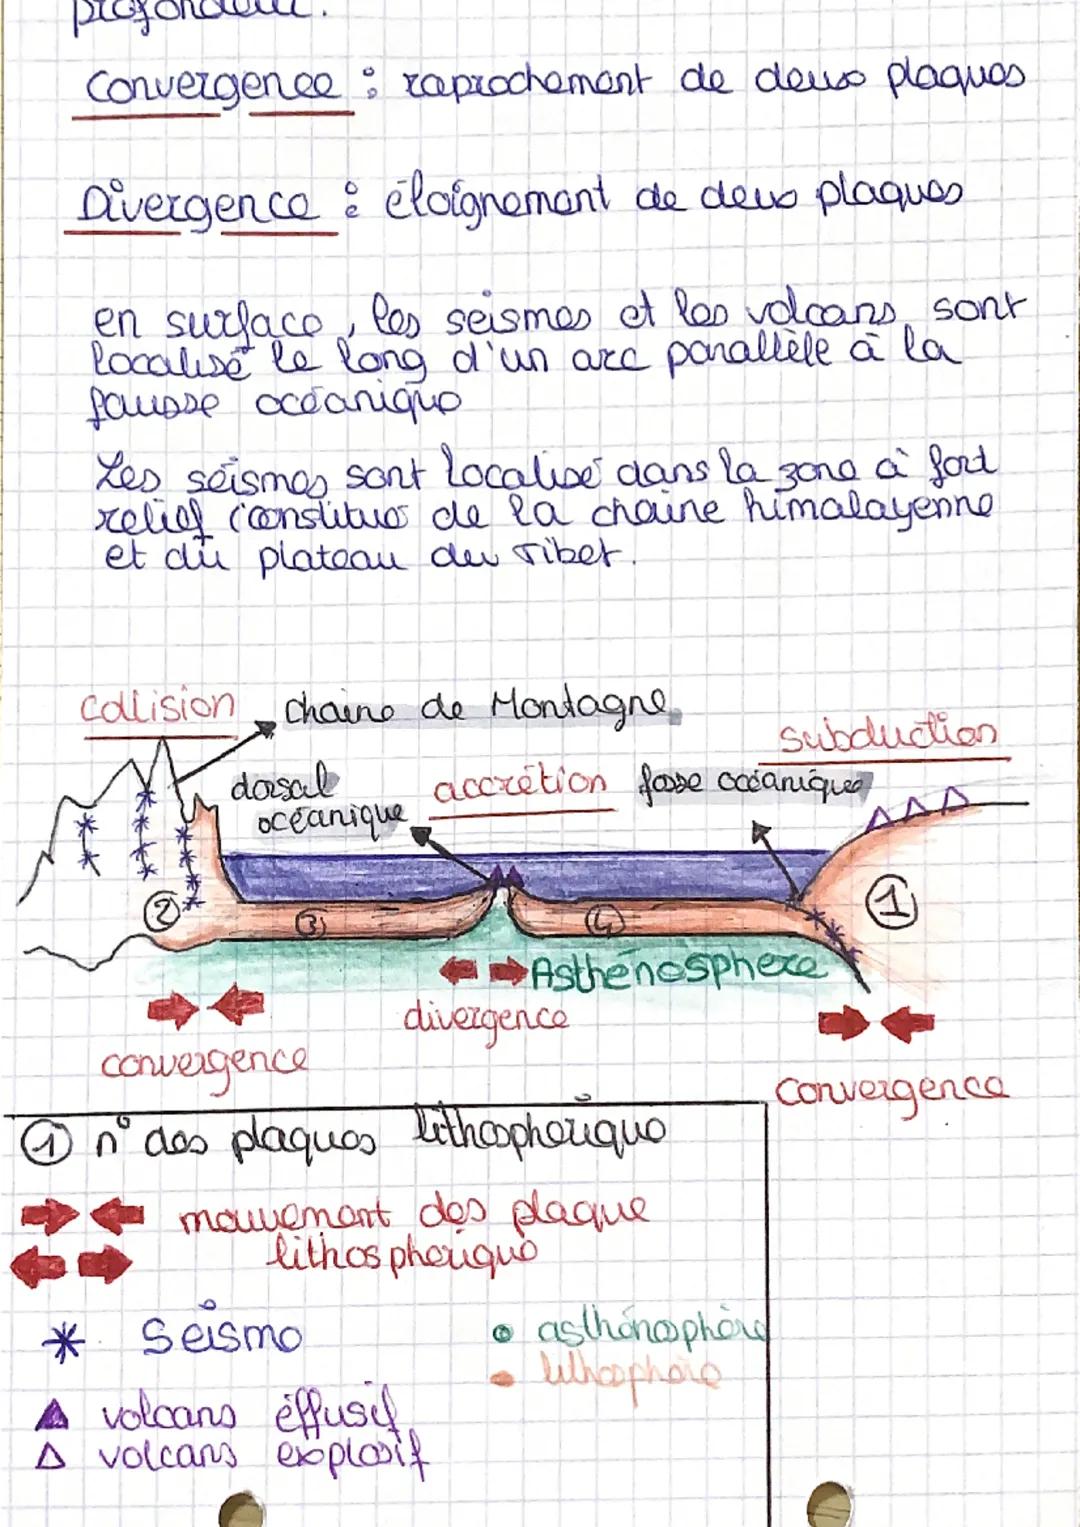 profondeur.
Convergence : raprochement de deux plaques
Divergence : éloignement de deux plaques
en surface, les séismes et les volcans sont
localisé le long d'un arc parallèle à la
fausse océanique
Les séismes sont localisé dans la zone à fort
relief (constitués de la chaine himalayenne
et du plateau du Tibet.
collision
chaine de Montagne
subduction
dorsal
océanique
accrétion
fosse océanique
2
3
4
1
Asthénosphere
divergence
convergence
convergence
1 n° des plaques lithosphérique
mouvement des plaque
lithosphérique
séisme
asthénosphère
lithosphère
volcans éffusif
volcans explosif